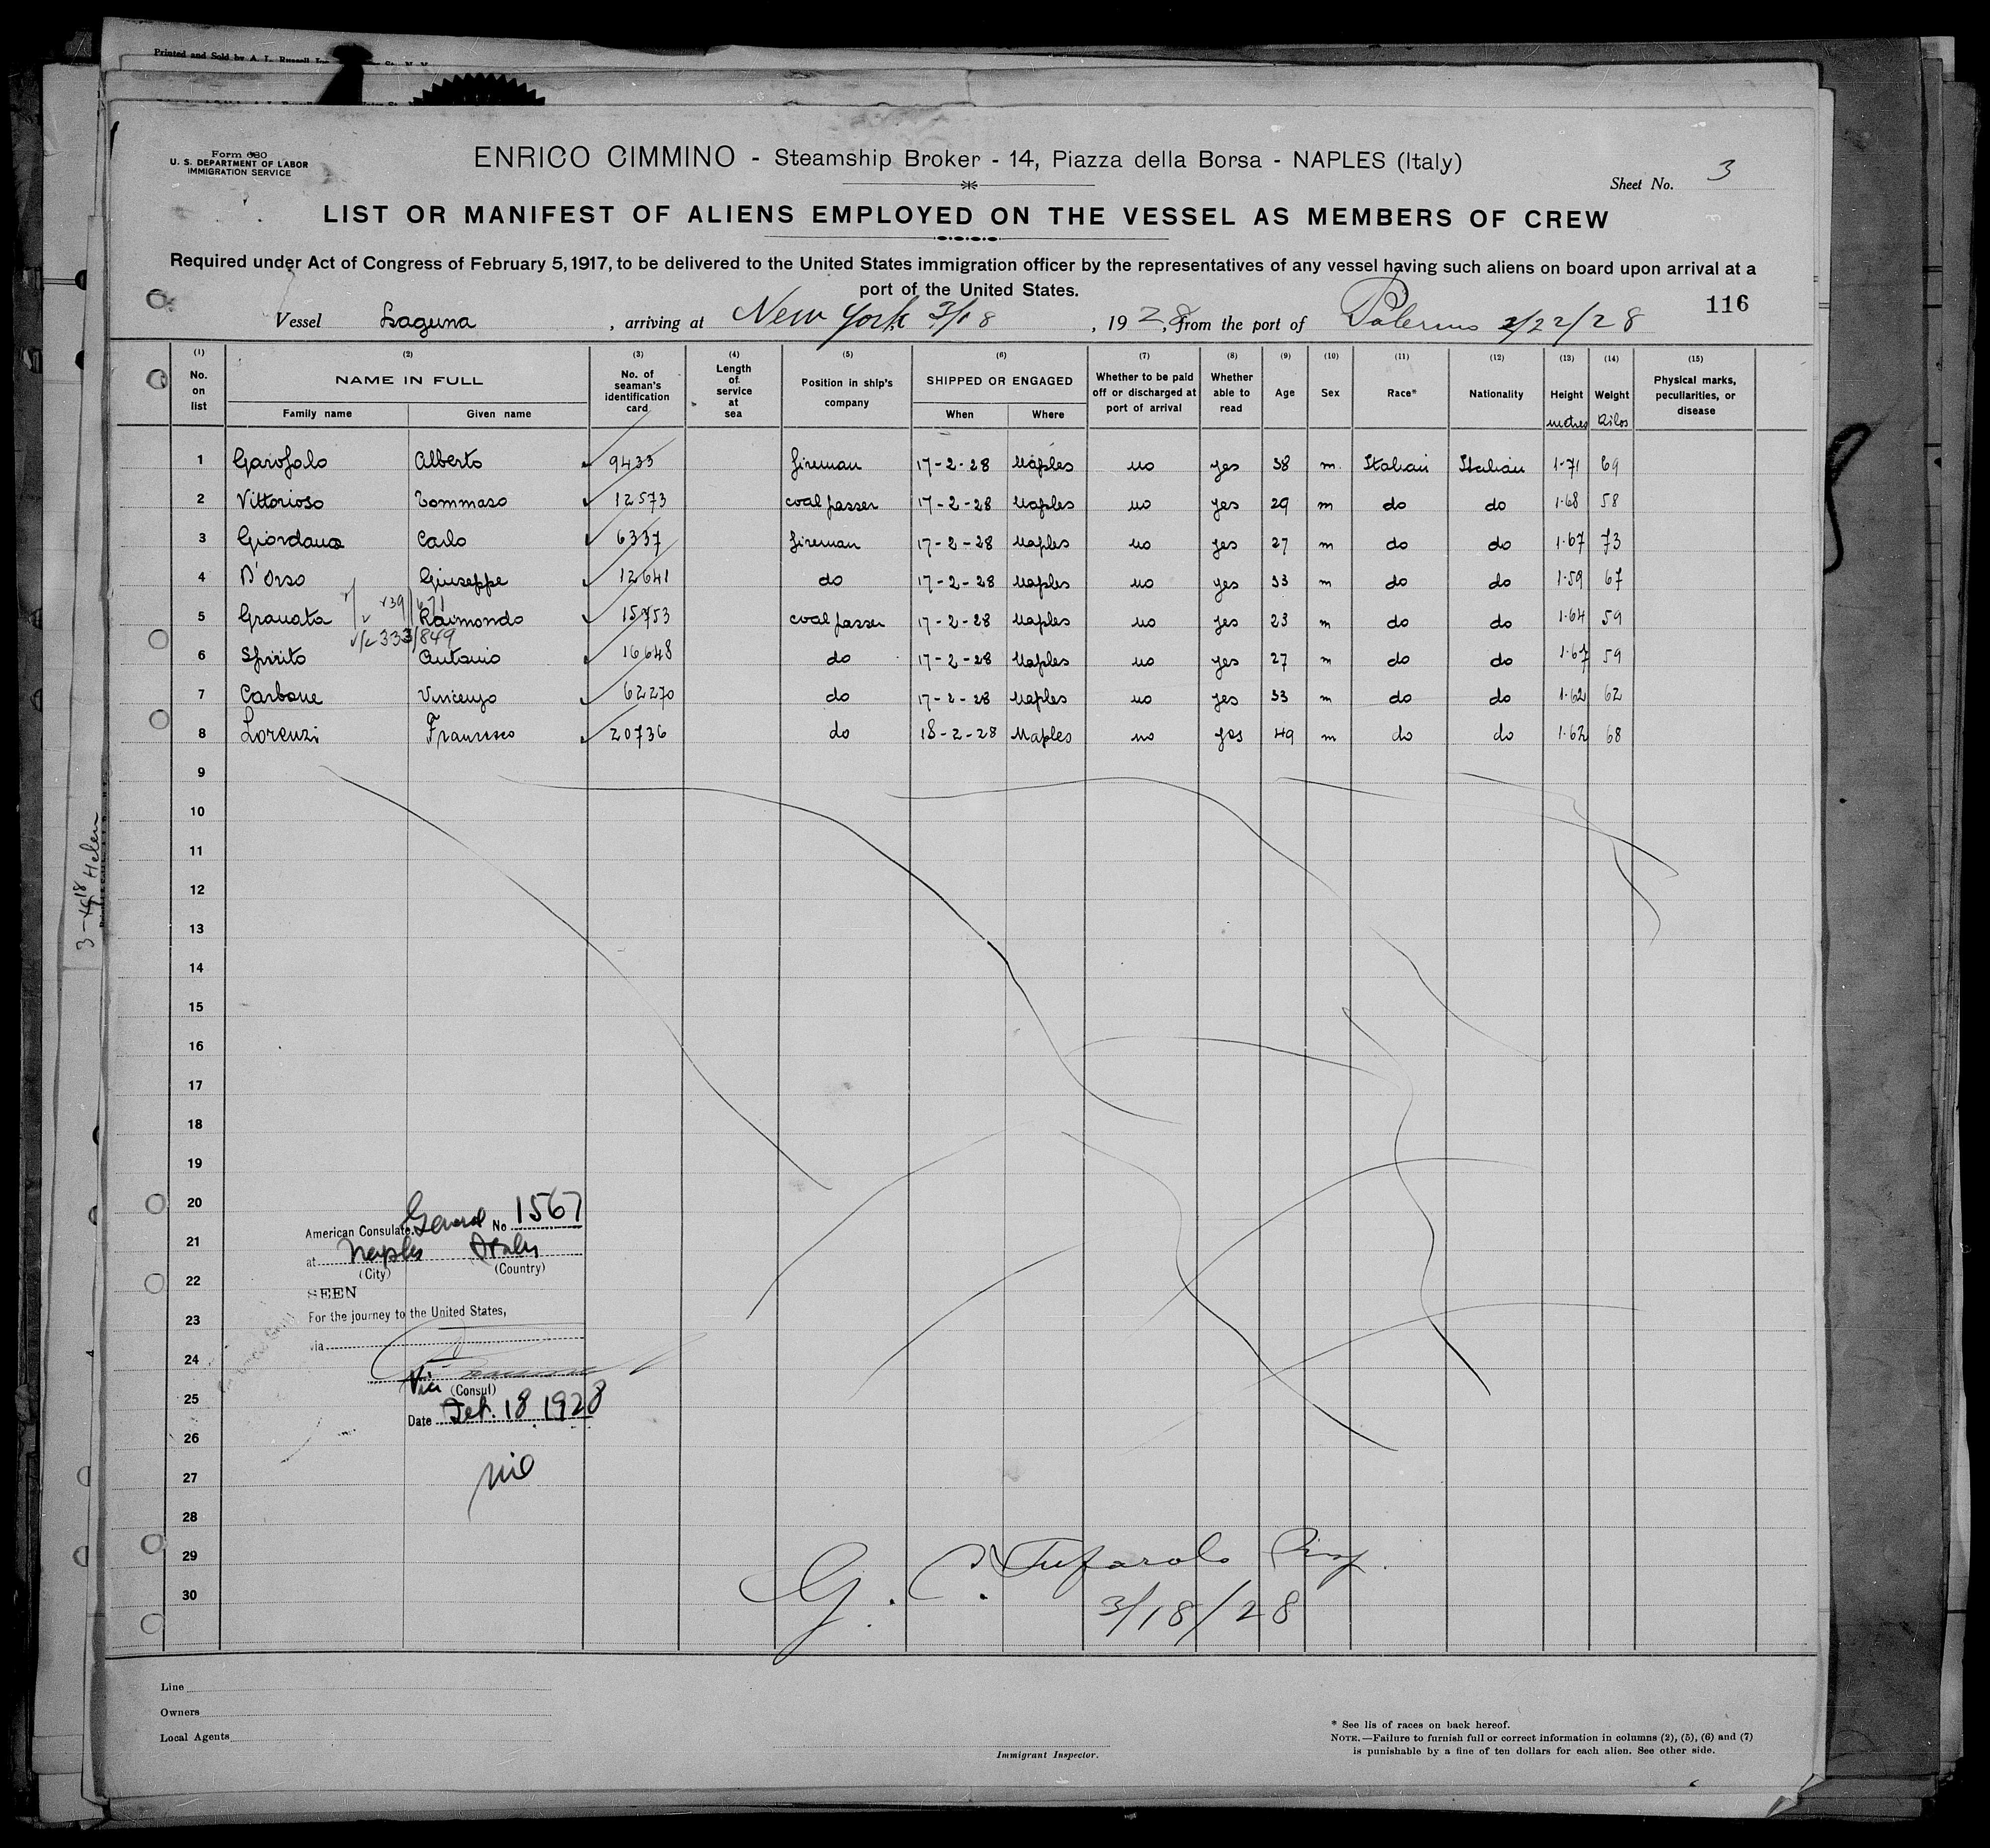 Printed and Sold by A. L. Russell
Form 680
U. S. DEPARTMENT OF LABOR
IMMIGRATION SERVICE
ENRICO CIMMINO - Steamship Broker - 14, Piazza della Borsa - NAPLES (Italy)
Sheet No. 3
LIST OR MANIFEST OF ALIENS EMPLOYED ON THE VESSEL AS MEMBERS OF CREW
Required under Act of Congress of February 5, 1917, to be delivered to the United States immigration officer by the representatives of any vessel having such aliens on board upon arrival at a
port of the United States.
116
Vessel Laguna, arriving at New York 3/18, 1928, from the port of Palermo 2/22/28
(1) (2) (3) (4) (5) (6) (7) (8) (9) (10) (11) (12) (13) (14) (15)
No. on list NAME IN FULL Family name Given name No. of seaman's identification card Length of service at sea Position in ship's company SHIPPED OR ENGAGED When Where Whether to be paid off or discharged at port of arrival Whether able to read Age Sex Race* Nationality Height metres Weight Kilos Physical marks, peculiarities, or disease
1 Garofalo Alberto 9433 fireman 17-2-28 Naples no yes 38 m. Italian Italian 1.71 69
2 Vittorioso Tommaso 12573 coal passer 17-2-28 Naples no yes 29 m do do 1.68 58
3 Giordano Carlo 6337 fireman 17-2-28 Naples no yes 27 m do do 1.67 73
4 D'Orso Giuseppe 12641 do 17-2-28 Naples no yes 33 m do do 1.59 67
5 Granata Raimondo 15753 coal passer 17-2-28 Naples no yes 23 m do do 1.64 59
333/849
6 Spirito Antonio 16648 do 17-2-28 Naples no yes 27 m do do 1.67 59
7 Carbone Vincenzo 62270 do 17-2-28 Naples no yes 33 m do do 1.62 62
8 Lorenzi Francesco 20736 do 18-2-28 Naples no yes 49 m do do 1.62 68
9
10
11
12
13
14
15
16
17
18
19
20
21
22
23
24
25
26
27
28
29
30
American Consulate General No 1567
at Naples Italy
(City) (Country)
SEEN
For the journey to the United States,
via
Vice (Consul)
Date Feb. 18, 1928
3/18/28
Line
Owners
Local Agents
Immigrant Inspector.
* See lis of races on back hereof.
NOTE.—Failure to furnish full or correct information in columns (2), (5), (6) and (7)
is punishable by a fine of ten dollars for each alien. See other side.
Helen